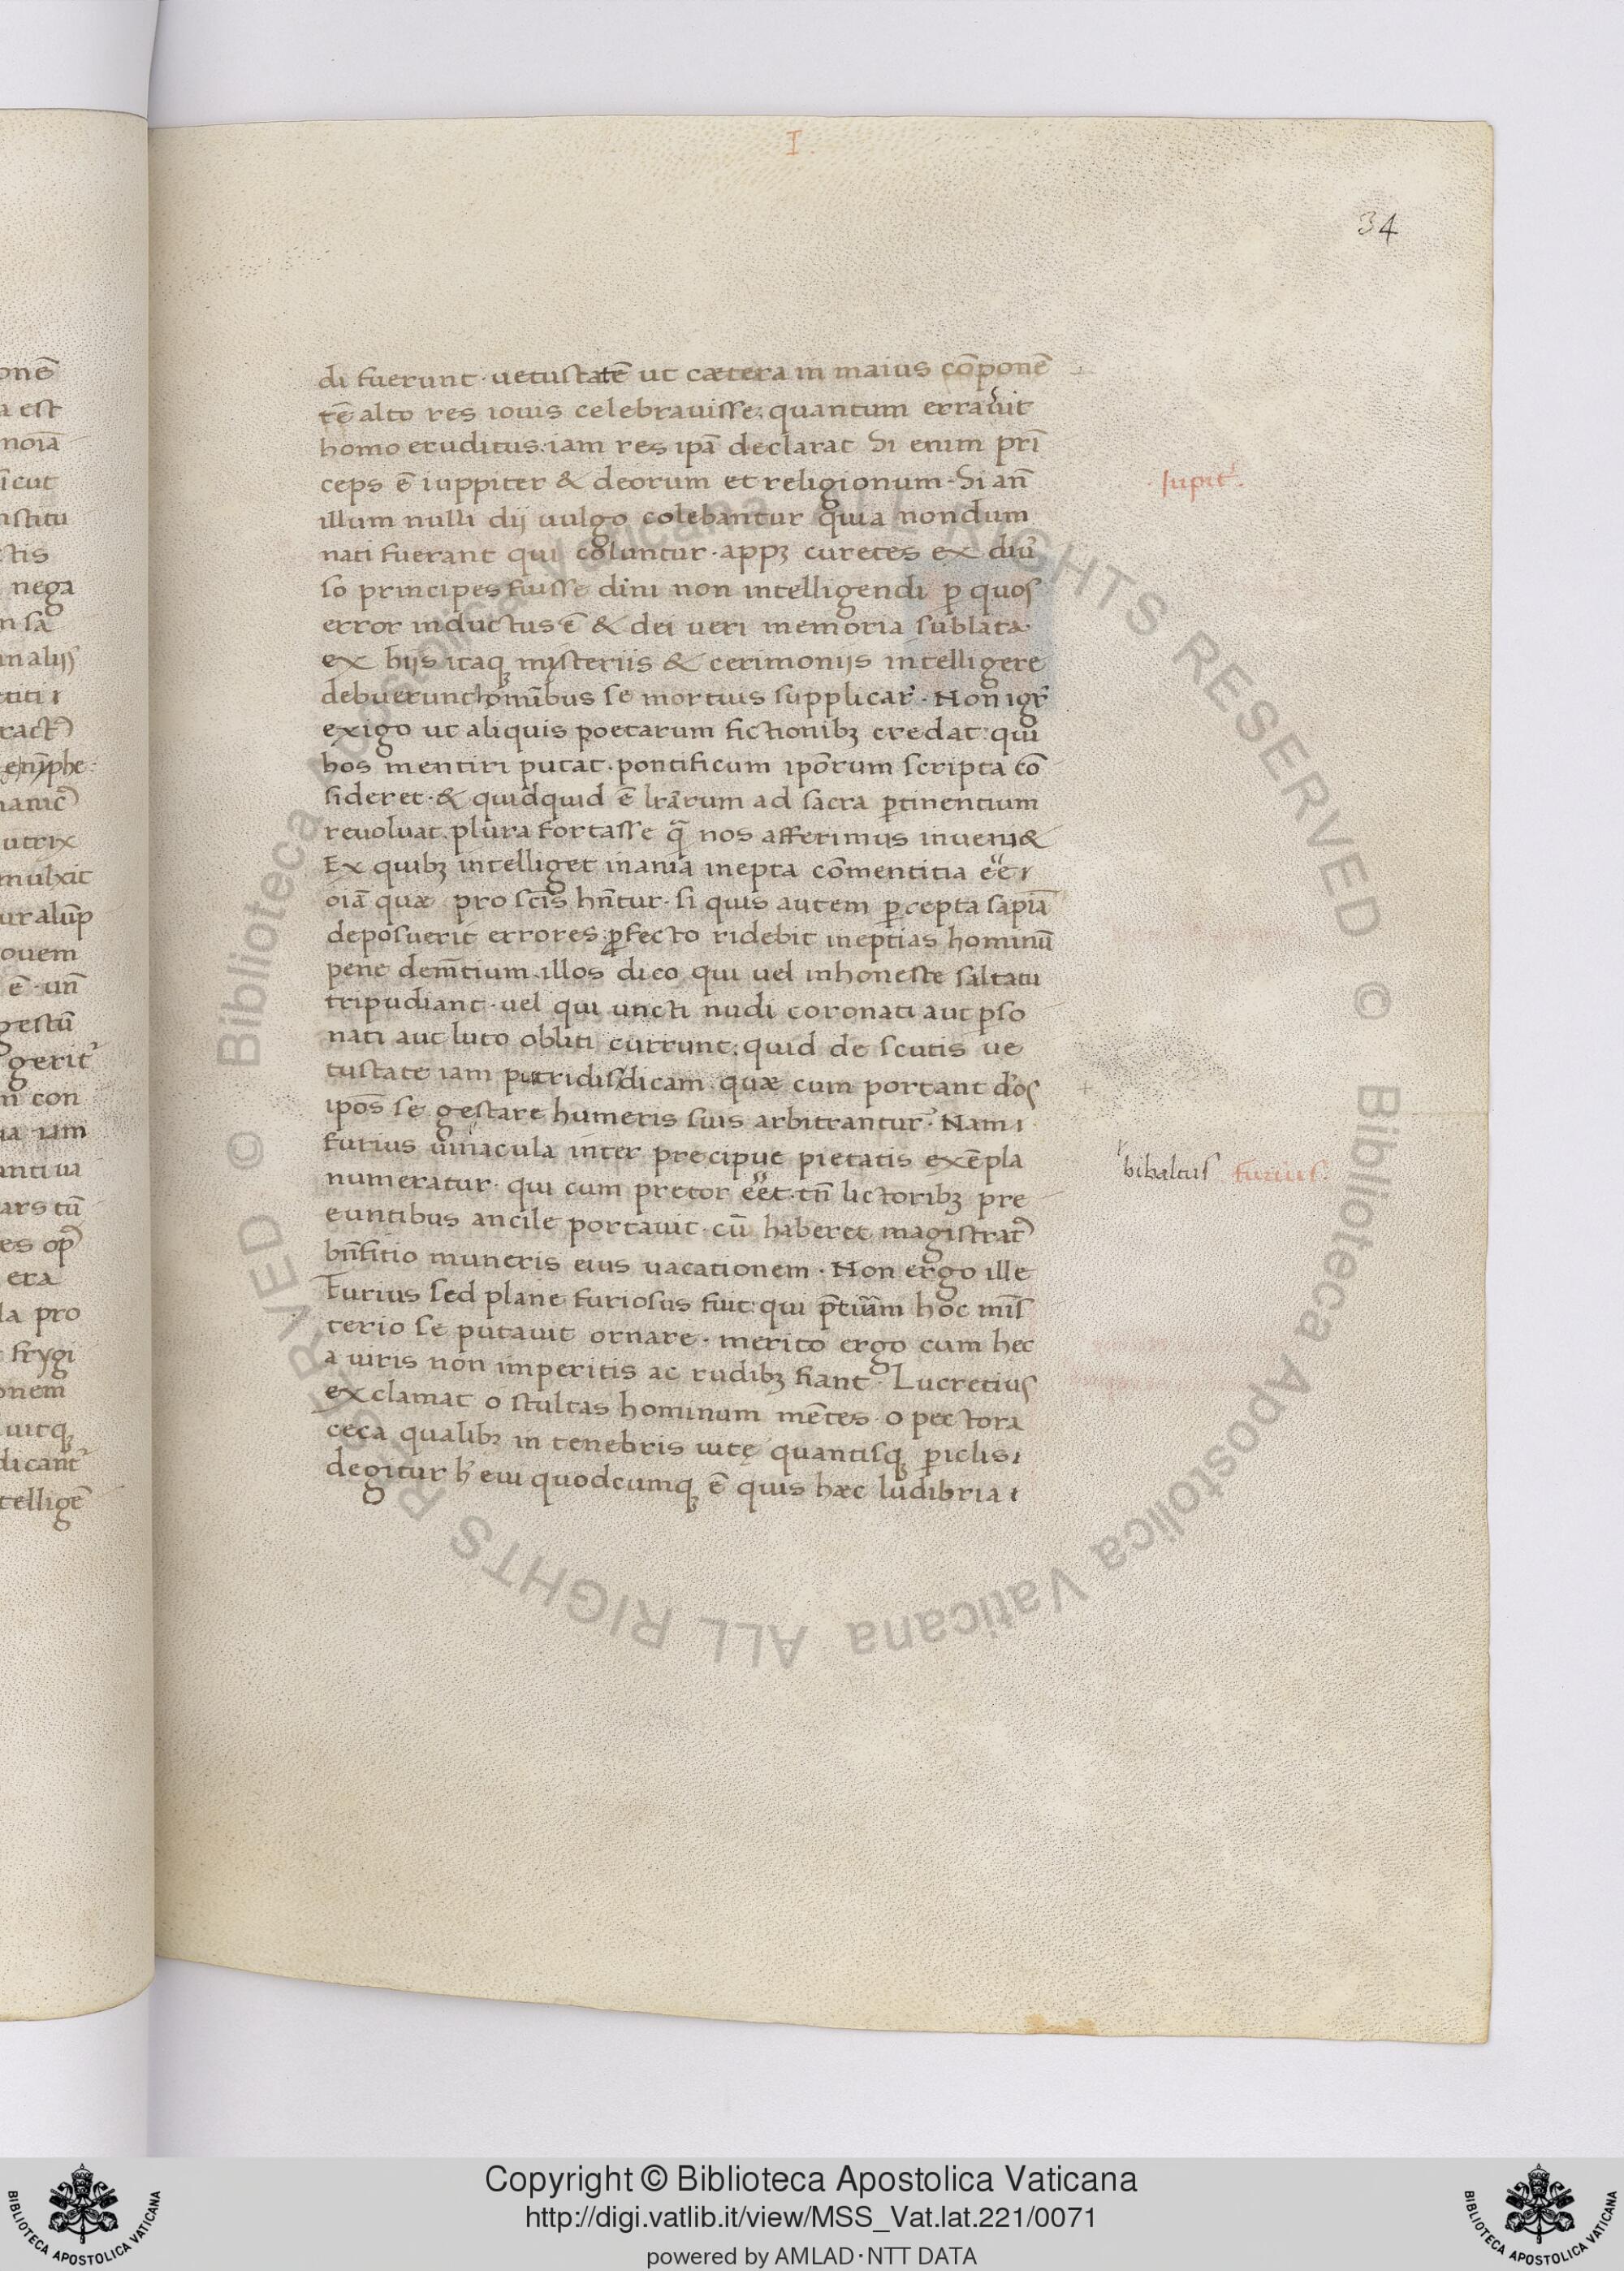 I.
34
di fuerunt · uetustatē ut cætera in maius cōponē
tē alto res iouis celebrauisse; quantum erravit
homo eruditus: iam res ipā declarat Si enim prī
ceps ē iuppiter & deorum et religionum · Si an̄
illum nulli dij uulgo colebantur quia nondum
nati fuerant qui coluntur · appꝫ curetes ex diu͛
so principes fuisse dini non intelligendi ꝑ quos
error inductus ē & dei ueri memoria sublata ·
ex hijs itaqꝫ mysteriis & cerimonijs intelligere
debuerunt hōnībus se mortuis supplicar͛ · Non igr͛
exigo ut aliquis poetarum fictionibꝫ credat: qui
hos mentiri putat · pontificum ipōrum scripta cō
sideret · & quidquid ē lr̄arum ad sacra ꝑtinentium
reuoluat · plura fortasse q̄ nos afferimus inueni&
Ex quibꝫ intelliget inania inepta cōmentitia eēt
oīa quæ pro scīs hn̄tur · si quis autem ꝑcepta sapīa
deposuerit errores ꝓfecto ridebit ineptias hominū
pene dem̄tium · illos dico qui uel inhoneste saltatu
tripudiant · uel qui uncti nudi coronati aut pso
nati aut luto obliti currunt: quid de scutis ue
tustate iam putridis dicam · quæ cum portant d͛os
ipōs se gestare humeris suis arbitrantur͛ · Nam ı
furius uiuacula inter precipue pietatis exēpla
numeratur · qui cum pretor eēt · tn̄ lictoribꝫ pre
euntibus ancile portauit · cū haberet magistrat͛
bn̄fitio muneris eius uacationem · Non ergo ille
Furius sed plane furiosus fuit: qui p̄tiam hoc mis
terio se putauit ornare · merito ergo cum hec
a uiris non imperitis ac rudibꝫ fiant · Lucretius
exclamat o stultas hominum mētes · o pectora
ceca qualibꝫ in tenebris uitę quantisqꝫ ꝑiclis ı
degitur h͛ eui quodcumqꝫ ē quis hæc ludibria ı
· Iupit͛ ·
bibaltus furius ·
onē
a est
noīa
īcut
nstitu
ctis
nega
n sā
inalijs
titi ı
tract͛
utrix
mulxit
uralūp
ouem
ē · un̄
gestū
gerit͛
con
ua iam
anti ua
ars tū
era
la pro
frygi
onem
uitqꝫ
dicant͛
telligē
© Biblioteca Apostolica Vaticana ALL RIGHTS RESERVED © Biblioteca Apostolica Vaticana ALL RIGHTS RESERVED
Copyright © Biblioteca Apostolica Vaticana
http://digi.vatlib.it/view/MSS_Vat.lat.221/0071
powered by AMLAD·NTT DATA
BIBLIOTECA APOSTOLICA VATICANA
BIBLIOTECA APOSTOLICA VATICANA